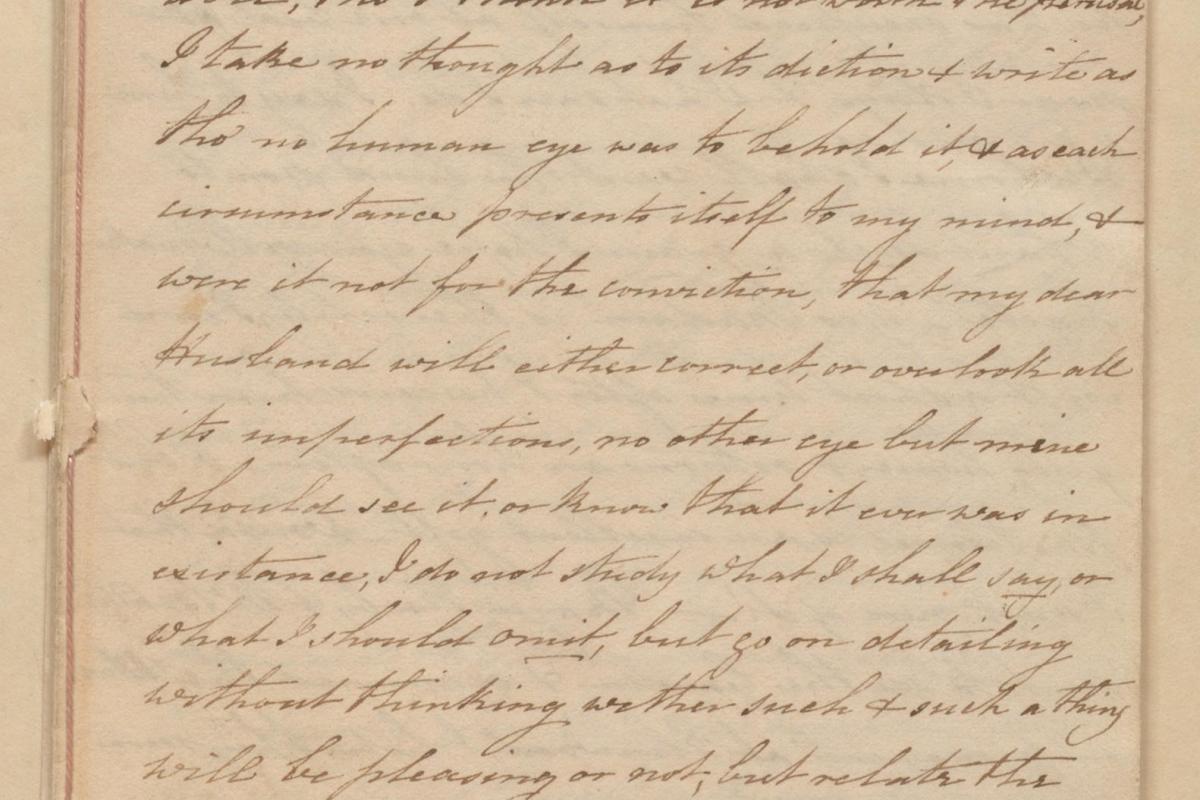 tho' I think it is not worth the perusal,
I take no thought as to its diction & write as
tho' no human eye was to behold it, & as each
circumstance presents itself to my mind, &
were it not for the conviction, that my dear
Husband will either correct, or overlook all
its imperfections, no other eye but mine
should see it, or know that it ever was in
existance, I do not study what I shall say, or
what I should omit, but go on detailing
without thinking wether such & such a thing
will be pleasing or not, but relate the